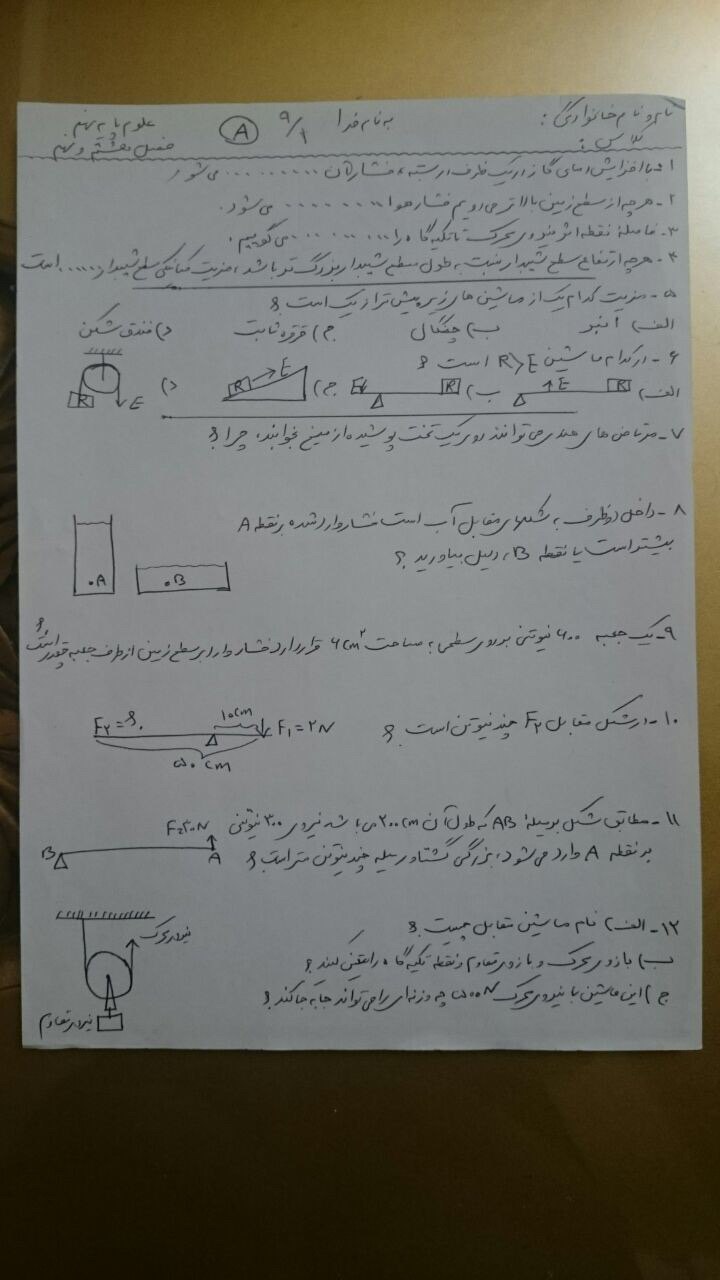 نام و نام خانوادگی: به نام خدا ۹/۱ A علوم پایه نهم
کلاس: فصل هشتم و نهم
۱- با افزایش دمای گاز در یک ظرف در بسته، فشار آن .......... می شود.
۲- هرچه از سطح زمین بالاتر می رویم فشار هوا .......... می شود.
۳- فاصله نقطه اثر نیروی محرک تا تکیه گاه را .......... می گوییم.
۴- هرچه ارتفاع سطح شیبدار نسبت به طول سطح شیبدار بزرگ تر باشد، مزیت مکانیکی سطح شیبدار ..... است
۵- مزیت کدام یک از ماشین های زیر بیش تر از یک است؟
الف) انبر ب) چنگال ج) قرقره ثابت د) فندق شکن
۶- در کدام ماشین R>E است؟
الف) E R ب) E R ج) R E د) R E
۷- مرتاض های هندی می توانند روی یک تخت پوشیده از میخ بخوابند، چرا؟
۸- داخل دو ظرف به شکلهای مقابل آب است فشار وارد شده بر نقطه A
بیشتر است یا نقطه B، دلیل بیاورید؟
A B
۹- یک جعبه ۶۰۰ نیوتنی بر روی سطحی به مساحت ۶cm² قرار دارد فشار وارد بر سطح زمین از طرف جعبه چقدر است؟
۱۰- در شکل مقابل F۲ چند نیوتن است؟
F۲=؟ ۱۰cm F۱=۲N
۵۰cm
۱۱- مطابق شکل بوسیله AB که طول آن ۲۰۰cm می باشد نیروی ۳۰۰ نیوتنی
بر نقطه A وارد می شود، بزرگی گشتاور میله چند نیوتن متر است؟
F=۳۰۰N
B A
۱۲- الف) نام ماشین مقابل چیست؟
ب) بازوی محرک و بازوی مقاوم و نقطه تکیه گاه را تعیین کنید؟
ج) این ماشین با نیروی محرک ۵۰۰N چه وزنه ای را می تواند جابه جا کند؟
نیروی محرک
نیروی مقاوم